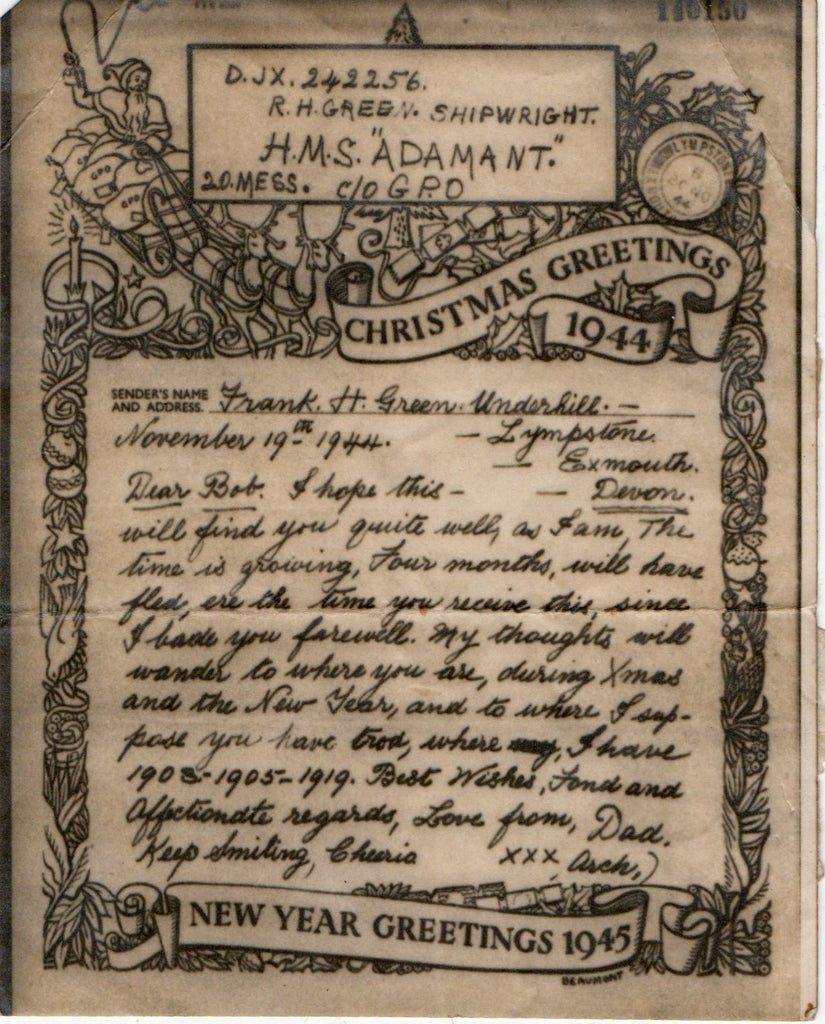 110180
D.JX.242256.
R.H.GREEN. SHIPWRIGHT.
H.M.S. "ADAMANT."
20.MESS. C/O G.P.O
GPO
GPO
LYMPSTONE
44
CHRISTMAS GREETINGS
1944
SENDER'S NAME
AND ADDRESS. Frank. H. Green. Underhill. —
November 19th 1944. — Lympstone.
— Exmouth.
Dear Bob. I hope this — — Devon.
will find you quite well, as I am, The
time is growing, Four months, will have
fled, ere the time you receive this, since
I bade you farewell. My thoughts will
wander to where you are, during Xmas
and the New Year, and to where I sup-
pose you have trod, where my, I have
1903-1905-1919. Best Wishes, Fond and
Affectionate regards, Love from, Dad.
Keep Smiling, Cheerio xxx, Arch,)
NEW YEAR GREETINGS 1945
BEAUMONT